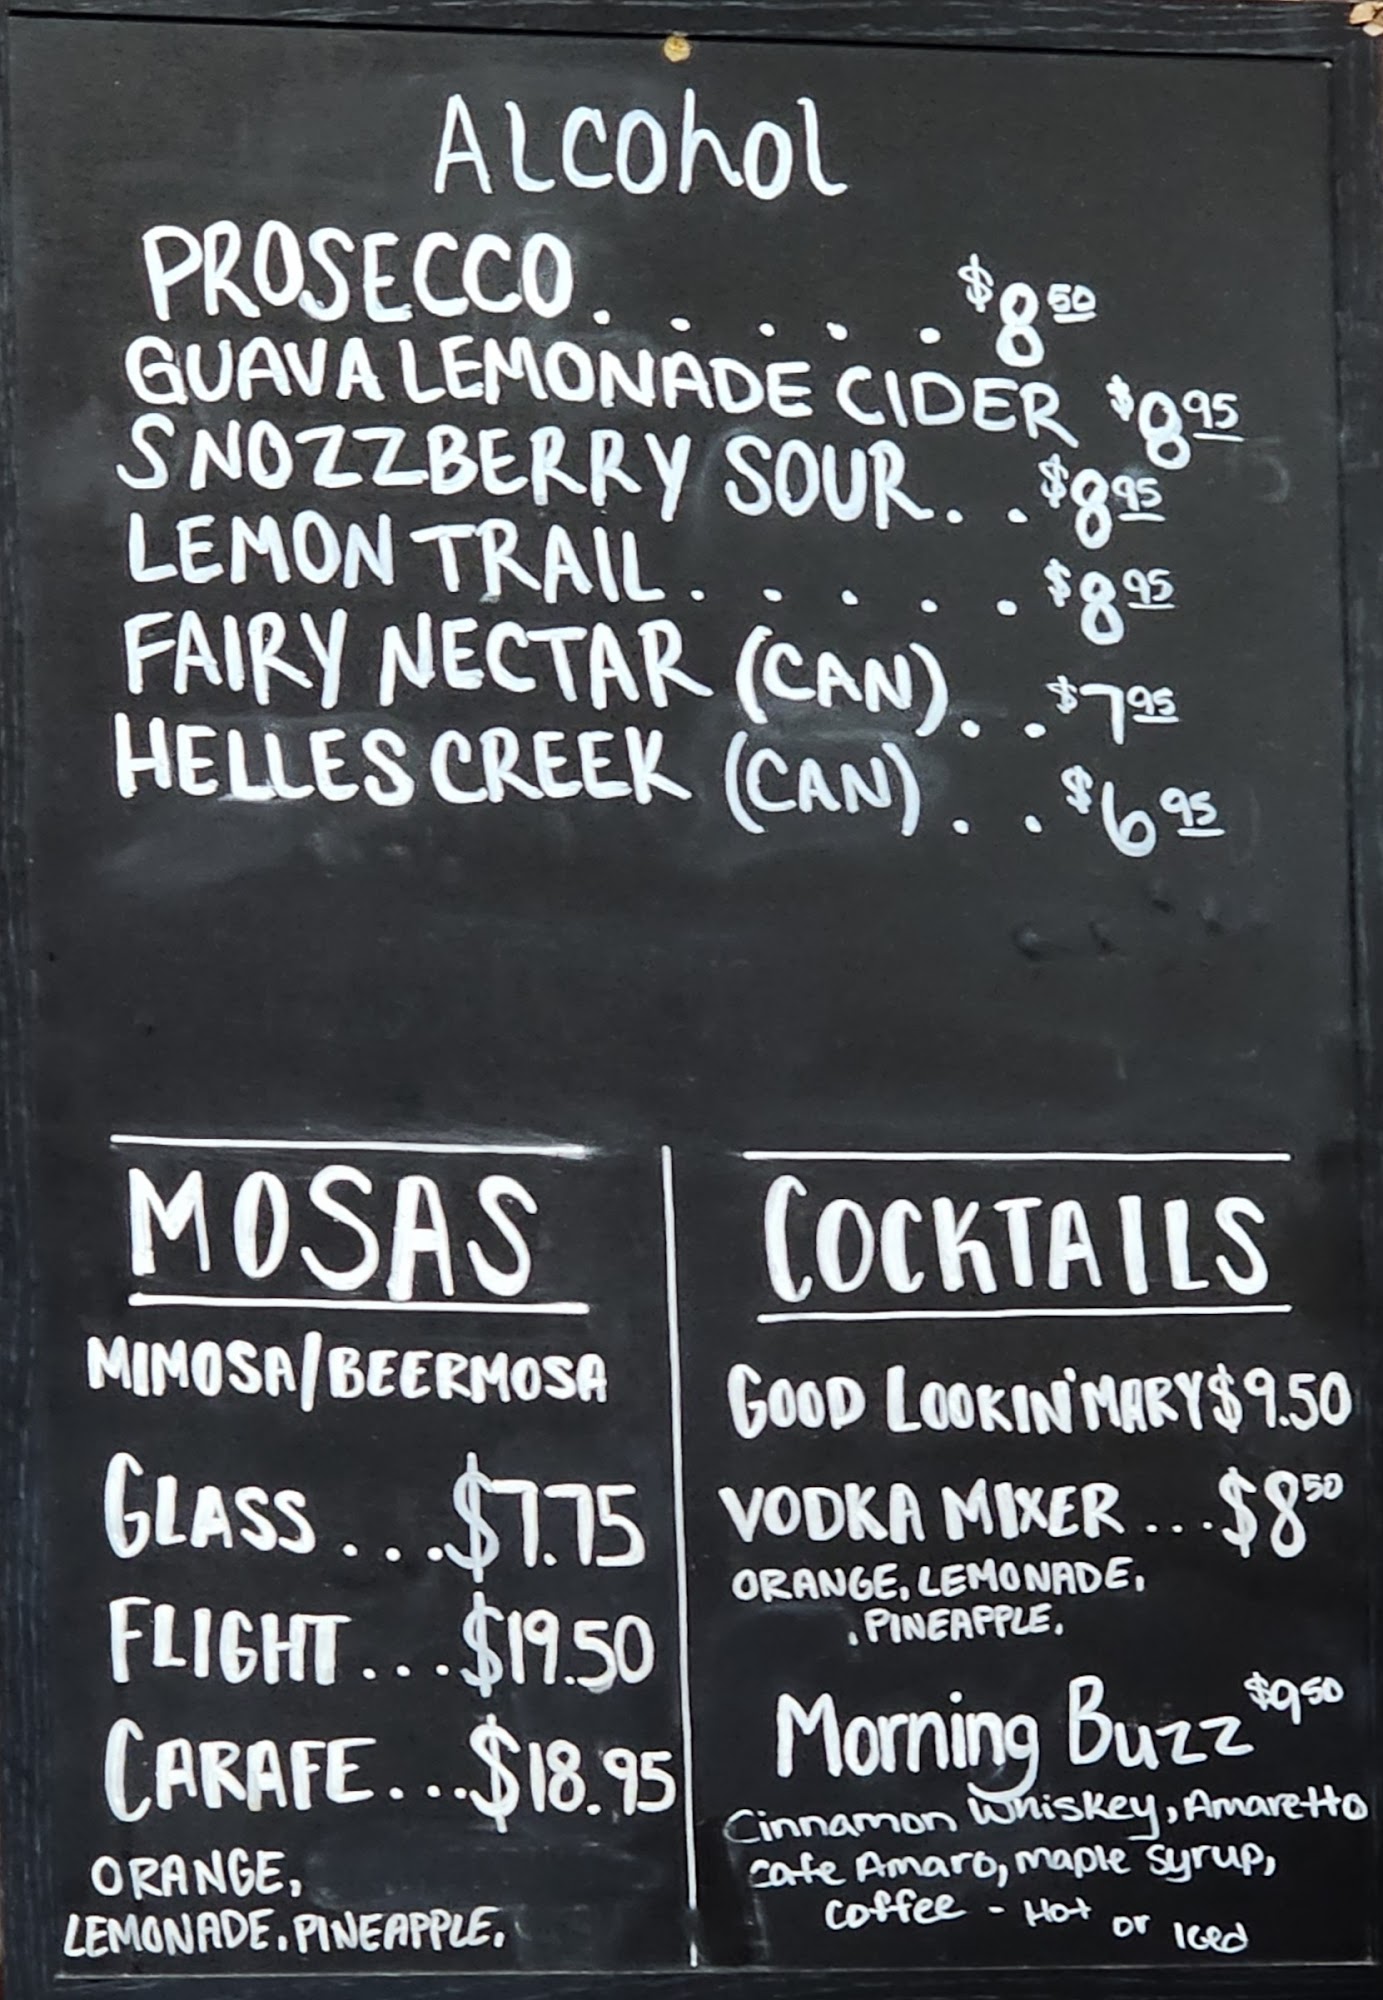 ALCOhOL
PROSECCO. . . . . $8 50
GUAVA LEMONADE CIDER $8 95
SNOZZBERRY SOUR. . $8 95
LEMON TRAIL. . . . . $8 95
FAIRY NECTAR (CAN). . $7 95
HELLES CREEK (CAN). . $6 95
MOSAS
MIMOSA/BEERMOSA
GLASS ...$7.75
FLIGHT...$19.50
CARAFE...$18.95
ORANGE,
LEMONADE, PINEAPPLE,
COCKTAILS
GOOD LOOKIN' MARY $9.50
VODKA MIXER ...$8 50
ORANGE, LEMONADE,
. PINEAPPLE.
Morning Buzz $9 50
Cinnamon Whiskey, Amaretto
Cafe Amaro, maple syrup,
Coffee - Hot or Iced